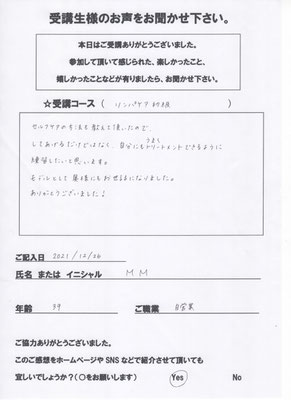 受講生様のお声をお聞かせ下さい。
本日はご受講ありがとうございました。
参加して頂いて感じられた、楽しかったこと、
嬉しかったことなどが有りましたら、お聞かせ下さい。
☆受講コース（ リンパケア初級 ）
セルフケアの方法も教えて頂いたので、
してあげるだけではなく、自分にもうまくトリートメントできるように
練習したいと思います。
モデルとして
ありがとうございました！
ご記入日 2021/12/26
氏名 または イニシャル MM
年齢 39 ご職業 自営業
ご協力ありがとうございました。
このご感想をホームページやSNSなどで紹介させて頂いても
宜しいでしょうか？（〇をお願いします） Yes No